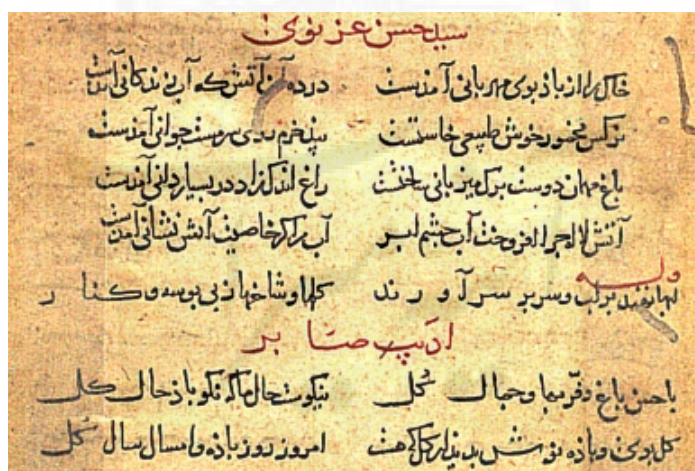 سید حسن غزنوی
خاک را از باذ بوی مهربانی آمذست در ده آن آتش که آب زندکانی آمذست
نرکس مخمور خوش طبیعی خاستست بید خرم روی سرمست جوانی آمذست
باغ مهمان دوست برک میزبانی ساختست راغ اندک زاد در بسیاردانی آمذست
آتش لاله چرا افروخت آب چشم ابر آب را کر خاصیت آتش نشانی آمذست
وله
لبها نهند بر لب و سر بر سر آورند کلها و شاخها ز پی بوسه و کنار
ادیب صابر
با حسن باغ و فر و جمال کل نیکوست حال ما که نکو باذ حال کل
کل و باذه نوش امروز روز باذه و امسال سال کل